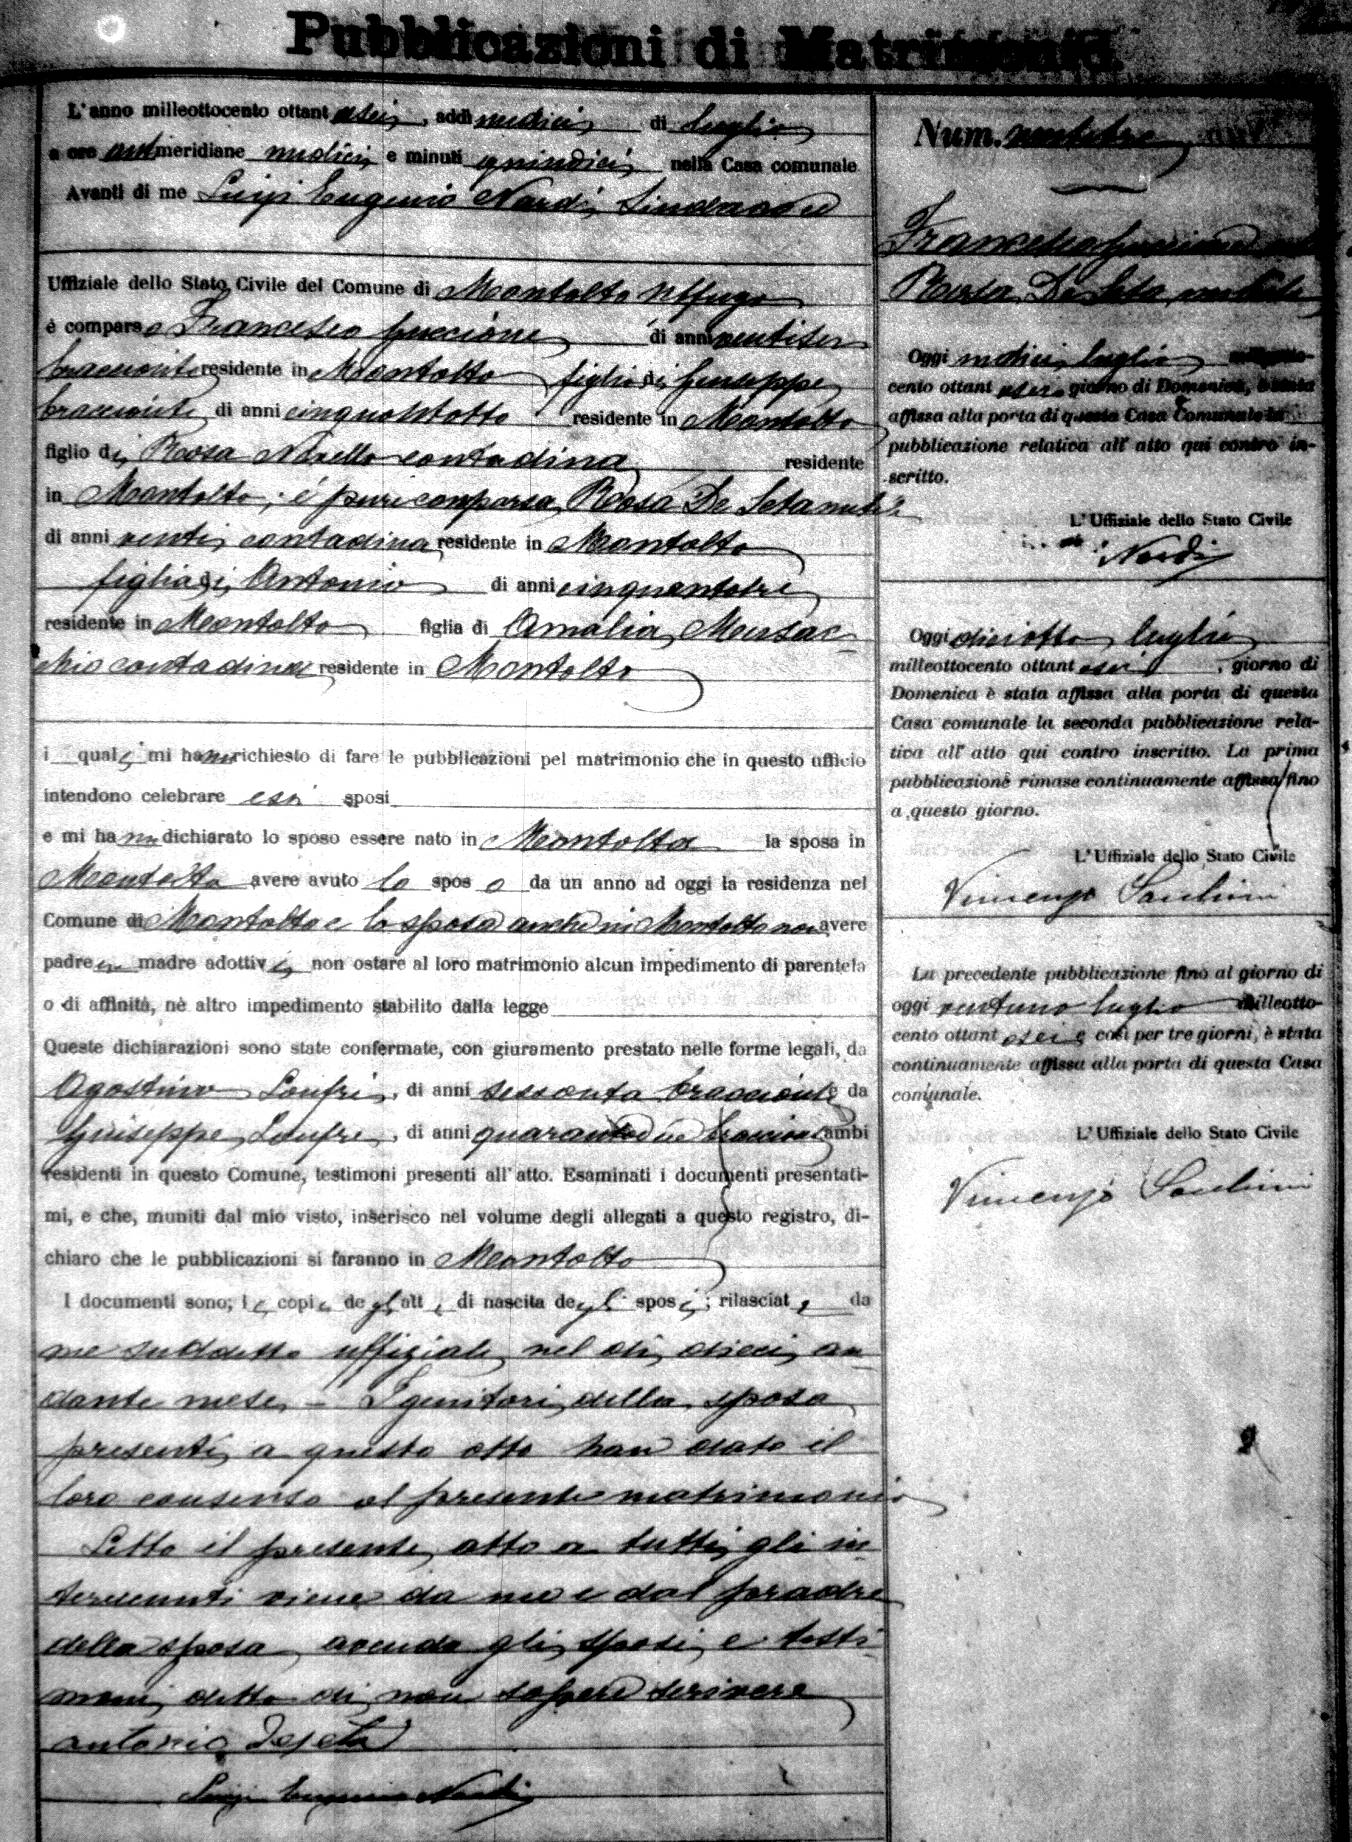 Pubblicazioni di Matrimonio.
L'anno milleottocento ottantasei, addì undici di luglio
a ore antmeridiane undici e minuti quindici nella Casa comunale
Avanti di me Luigi Eugenio Nardi, Sindaco ed
Uffiziale dello Stato Civile del Comune di Montalto Uffugo
è comparso Francesco Guccione di anni ventisei
bracciante residente in Montalto figlio di Giuseppe
bracciante di anni cinquantotto residente in Montalto
figlio di Rosa contadina residente
in Montalto; è pure comparsa Rosa De Seta nubile
di anni venti contadina residente in Montalto
figlia di Antonio di anni cinquantatre
residente in Montalto figlia di Amalia
contadina residente in Montalto
i quali mi hanno richiesto di fare le pubblicazioni pel matrimonio che in questo ufficio
intendono celebrare essi sposi
e mi hanno dichiarato lo sposo essere nato in Montalto la sposa in
Montalto avere avuto lo sposo da un anno ad oggi la residenza nel
Comune di Montalto e la sposa anche in Montalto non avere
padre madre adottivi non ostare al loro matrimonio alcun impedimento di parentela
o di affinità, nè altro impedimento stabilito dalla legge
Queste dichiarazioni sono state confermate, con giuramento prestato nelle forme legali, da
Agostino, di anni sessanta bracciante e da
Giuseppe, di anni bracciante ambi
residenti in questo Comune, testimoni presenti all'atto. Esaminati i documenti presentati-
mi, e che, muniti dal mio visto, inserisco nel volume degli allegati a questo registro, di-
chiaro che le pubblicazioni si faranno in Montalto
I documenti sono; le copie degli atti di nascita degli sposi; rilasciate da
me suddetto uffiziale nel dì dieci an
dante mese - I genitori della sposa
presenti a questo atto han dato il
loro consenso al presente matrimonio
Letto il presente atto a tutti gli in
tervenuti viene da me e dal pradre
della sposa avendo gli sposi e testi
moni detto di non sapere scrivere
Antonio Deseta
Luigi Eugenio Nardi
Num. ventitre
Francesco Guccione
Rosa De Seta nubile
Oggi undici luglio milleotto-
cento ottantasei giorno di Domenica, è stata
affissa alla porta di questa Casa Comunale la
pubblicazione relativa all'atto qui contro in-
scritto.
L'Uffiziale dello Stato Civile
Nardi
Oggi diciotto luglio
milleottocento ottantasei, giorno di
Domenica è stata affissa alla porta di questa
Casa comunale la seconda pubblicazione rela-
tiva all'atto qui contro inscritto. La prima
pubblicazione rimase continuamente affissa fino
a questo giorno.
L'Uffiziale dello Stato Civile
Vincenzo
La precedente pubblicazione fino al giorno di
oggi ventuno luglio milleotto-
cento ottantasei e così per tre giorni, è stata
continuamente affissa alla porta di questa Casa
comunale.
L'Uffiziale dello Stato Civile
Vincenzo